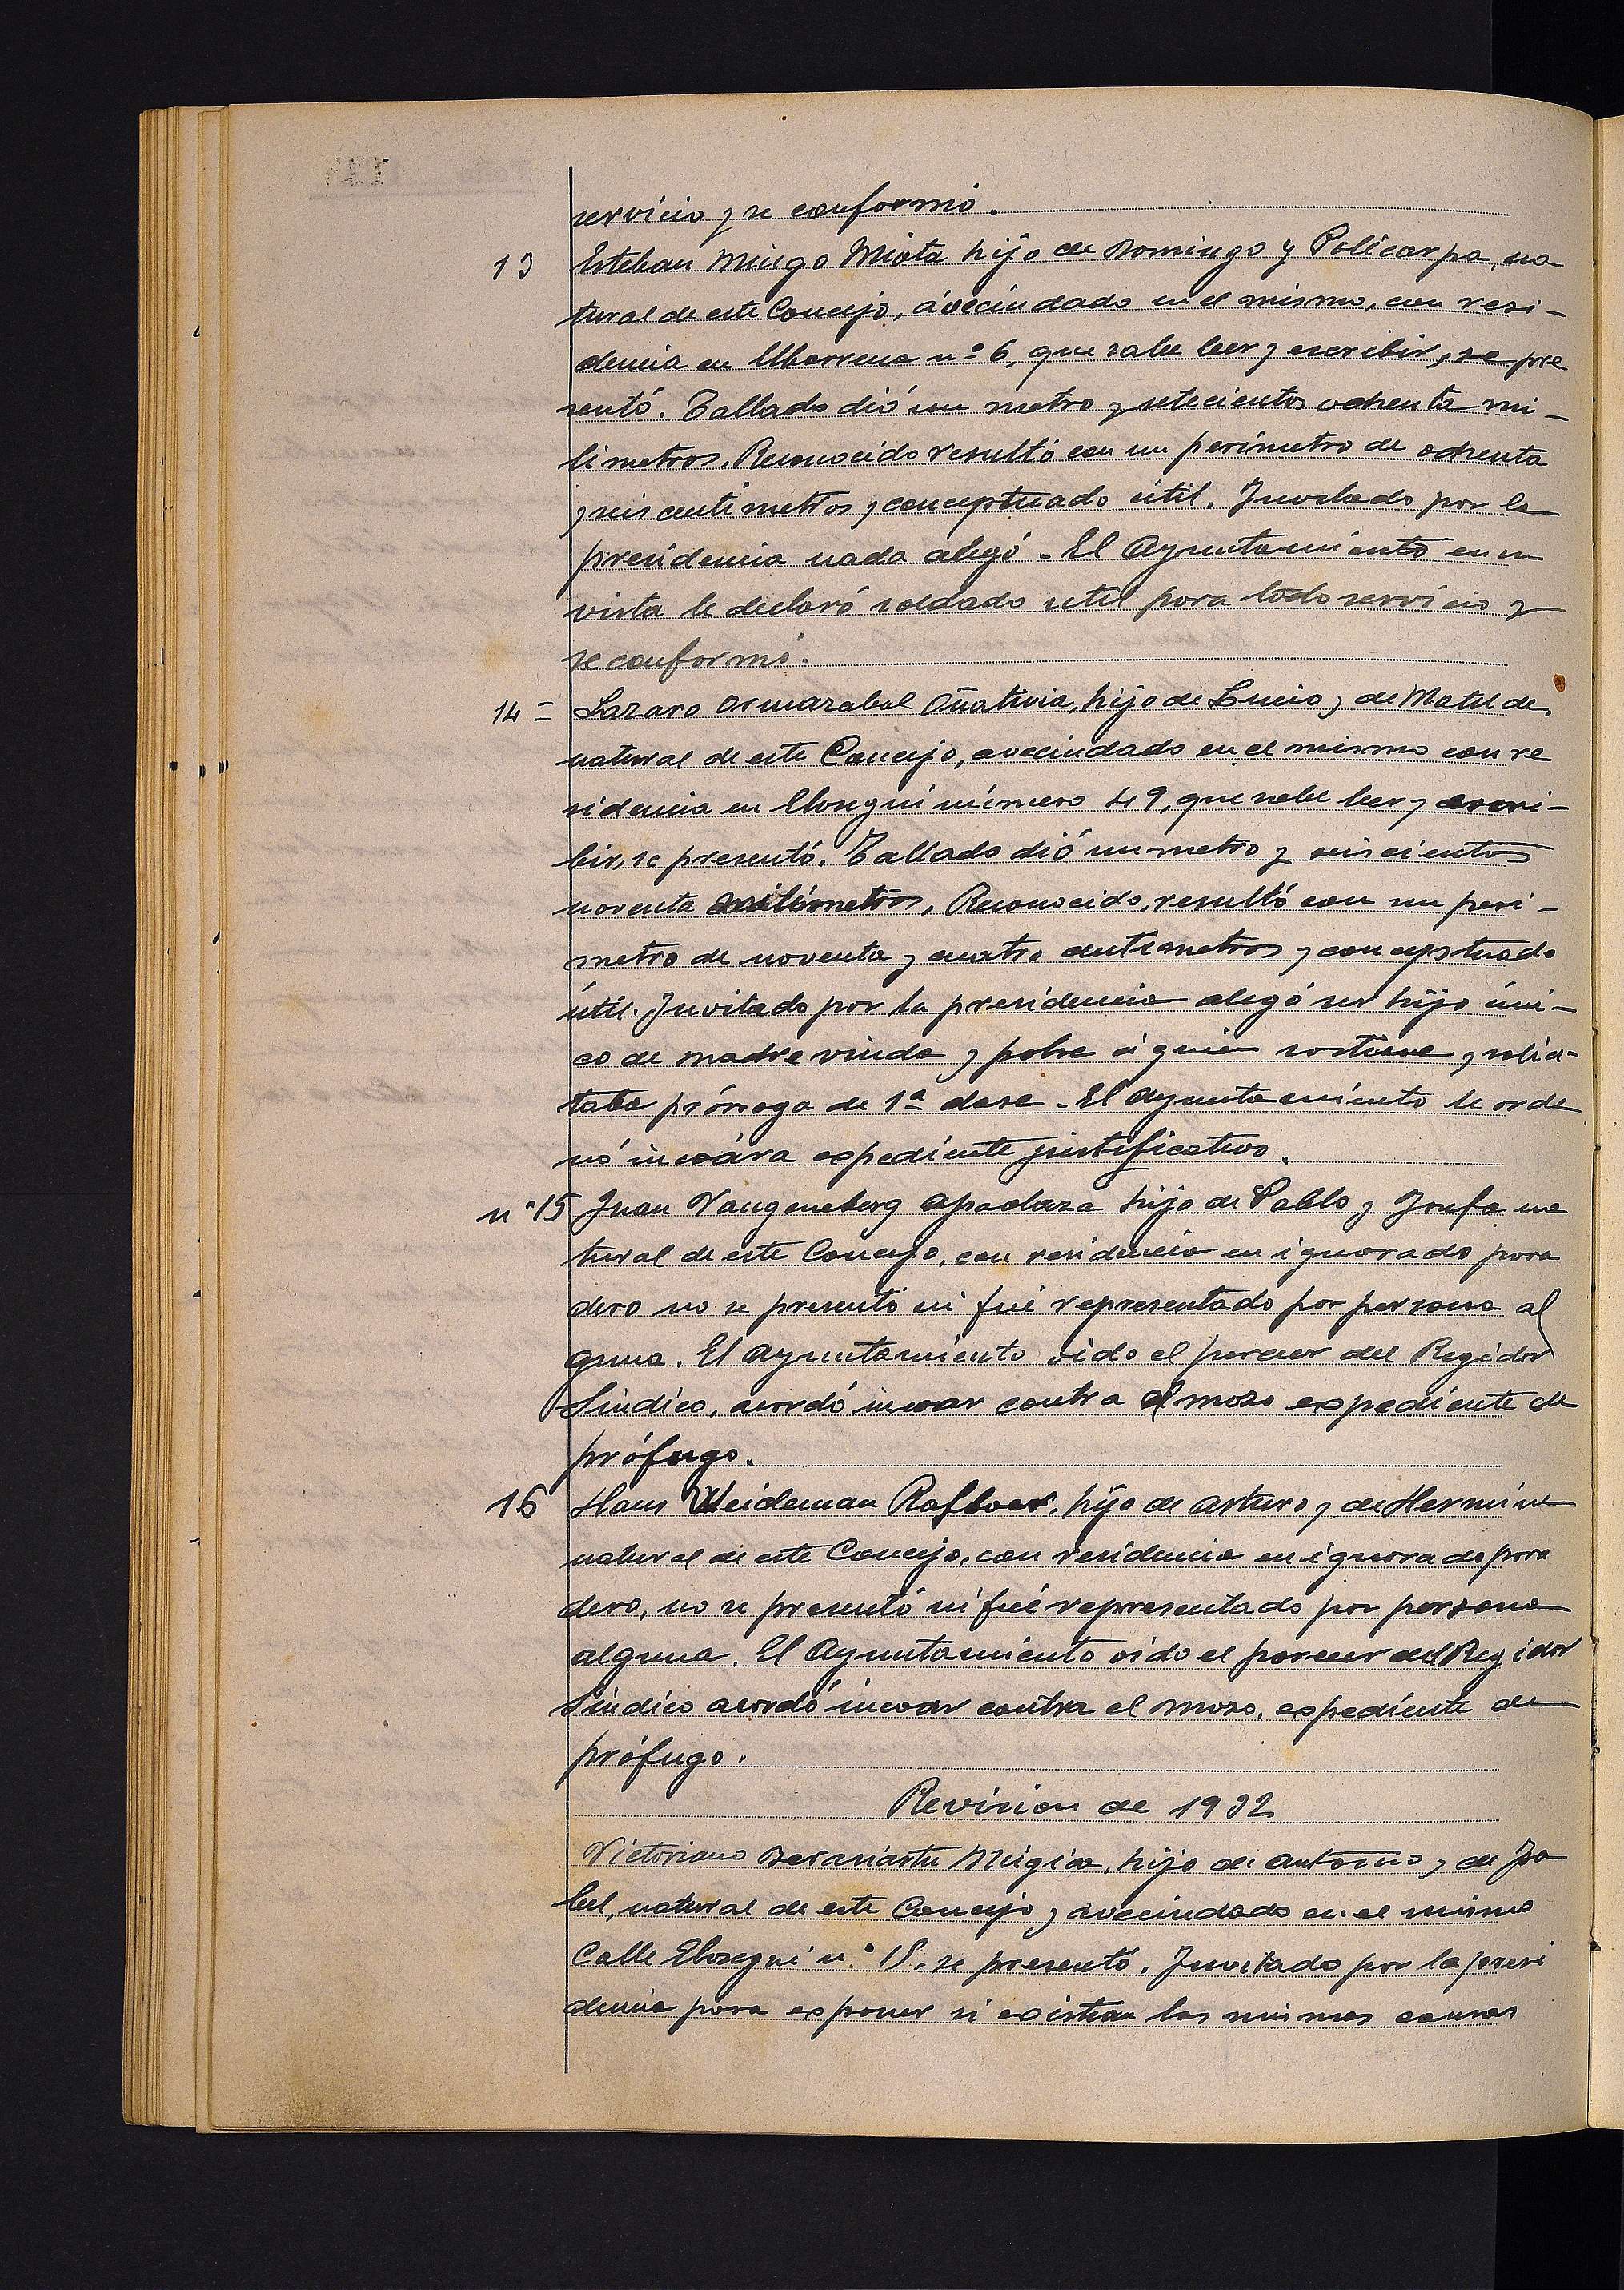 servicio y se conformó.
13 Esteban Mingo Miota hijo de Domingo y Policarpa, na
tural de este Concejo, avecindado en el mismo, con resi-
dencia en Ubarrena nº 6, que sabe leer y escribir, se pre
sentó. Tallado dió un metro y setecientos ochenta mi-
límetros. Reconocido resultó con un perímetro de ochenta
y seis centímetros y conceptuado útil. Invitado por la
presidencia nada alegó - El Ayuntamiento en su
vista le declaró soldado util para todo servicio y
se conformó.
14= Lazaro Ormazabal Oñativia, hijo de Lucio y de Matilde,
natural de este Concejo, avecindado en el mismo con re
sidencia en Elosegui número 49, que sabe leer y escri-
bir, se presentó. Tallado dió un metro y seiscientos
noventa milímetros. Reconocido, resultó con un perí-
metro de noventa y cuatro centímetros y conceptuado
útil. Invitado por la presidencia alegó ser hijo úni-
co de madre viuda y pobre á quien sostiene y solici-
taba prórroga de 1ª clase - El Ayuntamiento le orde
nó incoára expediente justificativo.
nº 15 Juan Vangeneberg Apaolaza hijo de Pablo y Josefa na
tural de este Concejo, con residencia en ignorado para
dero no se presentó ni fué representado por persona al
guna. El Ayuntamiento oido el parecer del Regidor
Síndico, acordó incoar contra el mozo expediente de
prófugo.
16 Hans Weideman, hijo de Arturo y de Hermine
natural de este Concejo, con residencia en ignorado para
dero, no se presentó ni fué representado por persona
alguna. El Ayuntamiento oido el parecer del Regidor
Síndico acordó incoar contra el mozo, expediente de
prófugo.
Revision de 1932
Victoriano Berasiartu Múgica, hijo de Antonio y de Isa
bel, natural de este Concejo y avecindado en el mismo
Calle Elosegui n.º 18, se presentó. Invitado por la presi
dencia para exponer si existian las mismas causas